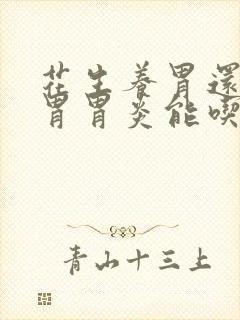 花生養胃還
胃胃炎能喫
青山十三上